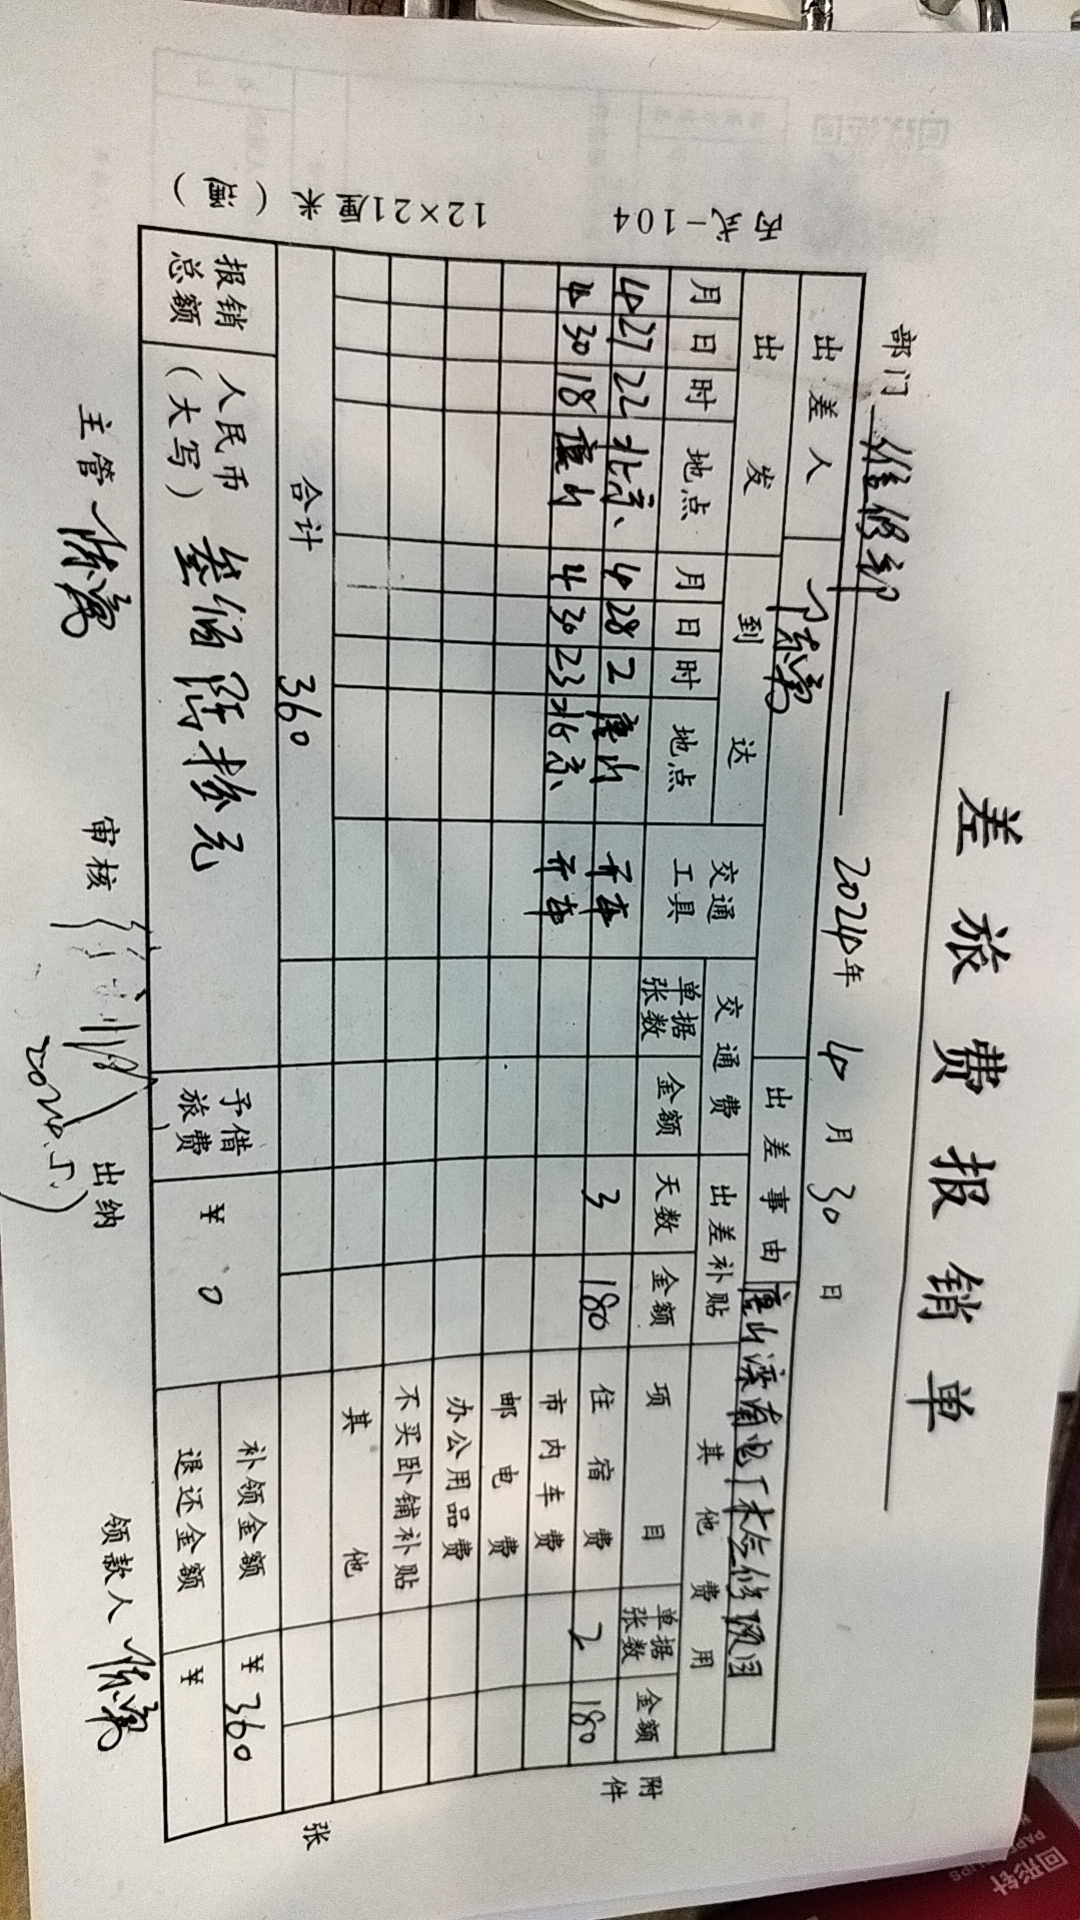 差旅费报销单
部门 维修部 2024年 4月 30日
出差人 陈勇 出差事由 唐山滦南电厂检修项目
出发 到达 交通工具 交通费 出差补贴 其他费用
月 日 时 地点 月 日 时 地点 单据张数 金额 天数 金额 项目 单据张数 金额
4 27 22 北京 4 28 2 唐山 开车 3 180 住宿费 2 180
4 30 18 唐山 4 30 23 北京 开车 市内车费
邮电费
办公用品费
不买卧铺补贴
其他
合计 360
报销总额 人民币(大写) 叁佰陆拾元 予借旅费 ¥ 0 补领金额 ¥ 360
退还金额 ¥
主管 陈勇 审核 2024.5. 出纳 领款人 陈勇
附件 张
丙式-104 12×21厘米(通)
回形针